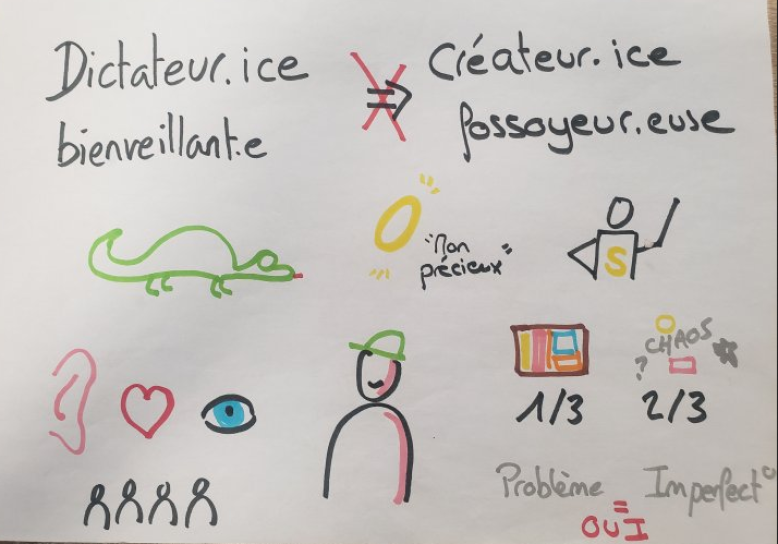 Dictateur.ice
bienveillant.e
⇒
Créateur.ice
fossoyeur.euse
"Mon
précieux"
S
CHAOS
?
1/3
2/3
Problème
Imperfect°
=
OUI